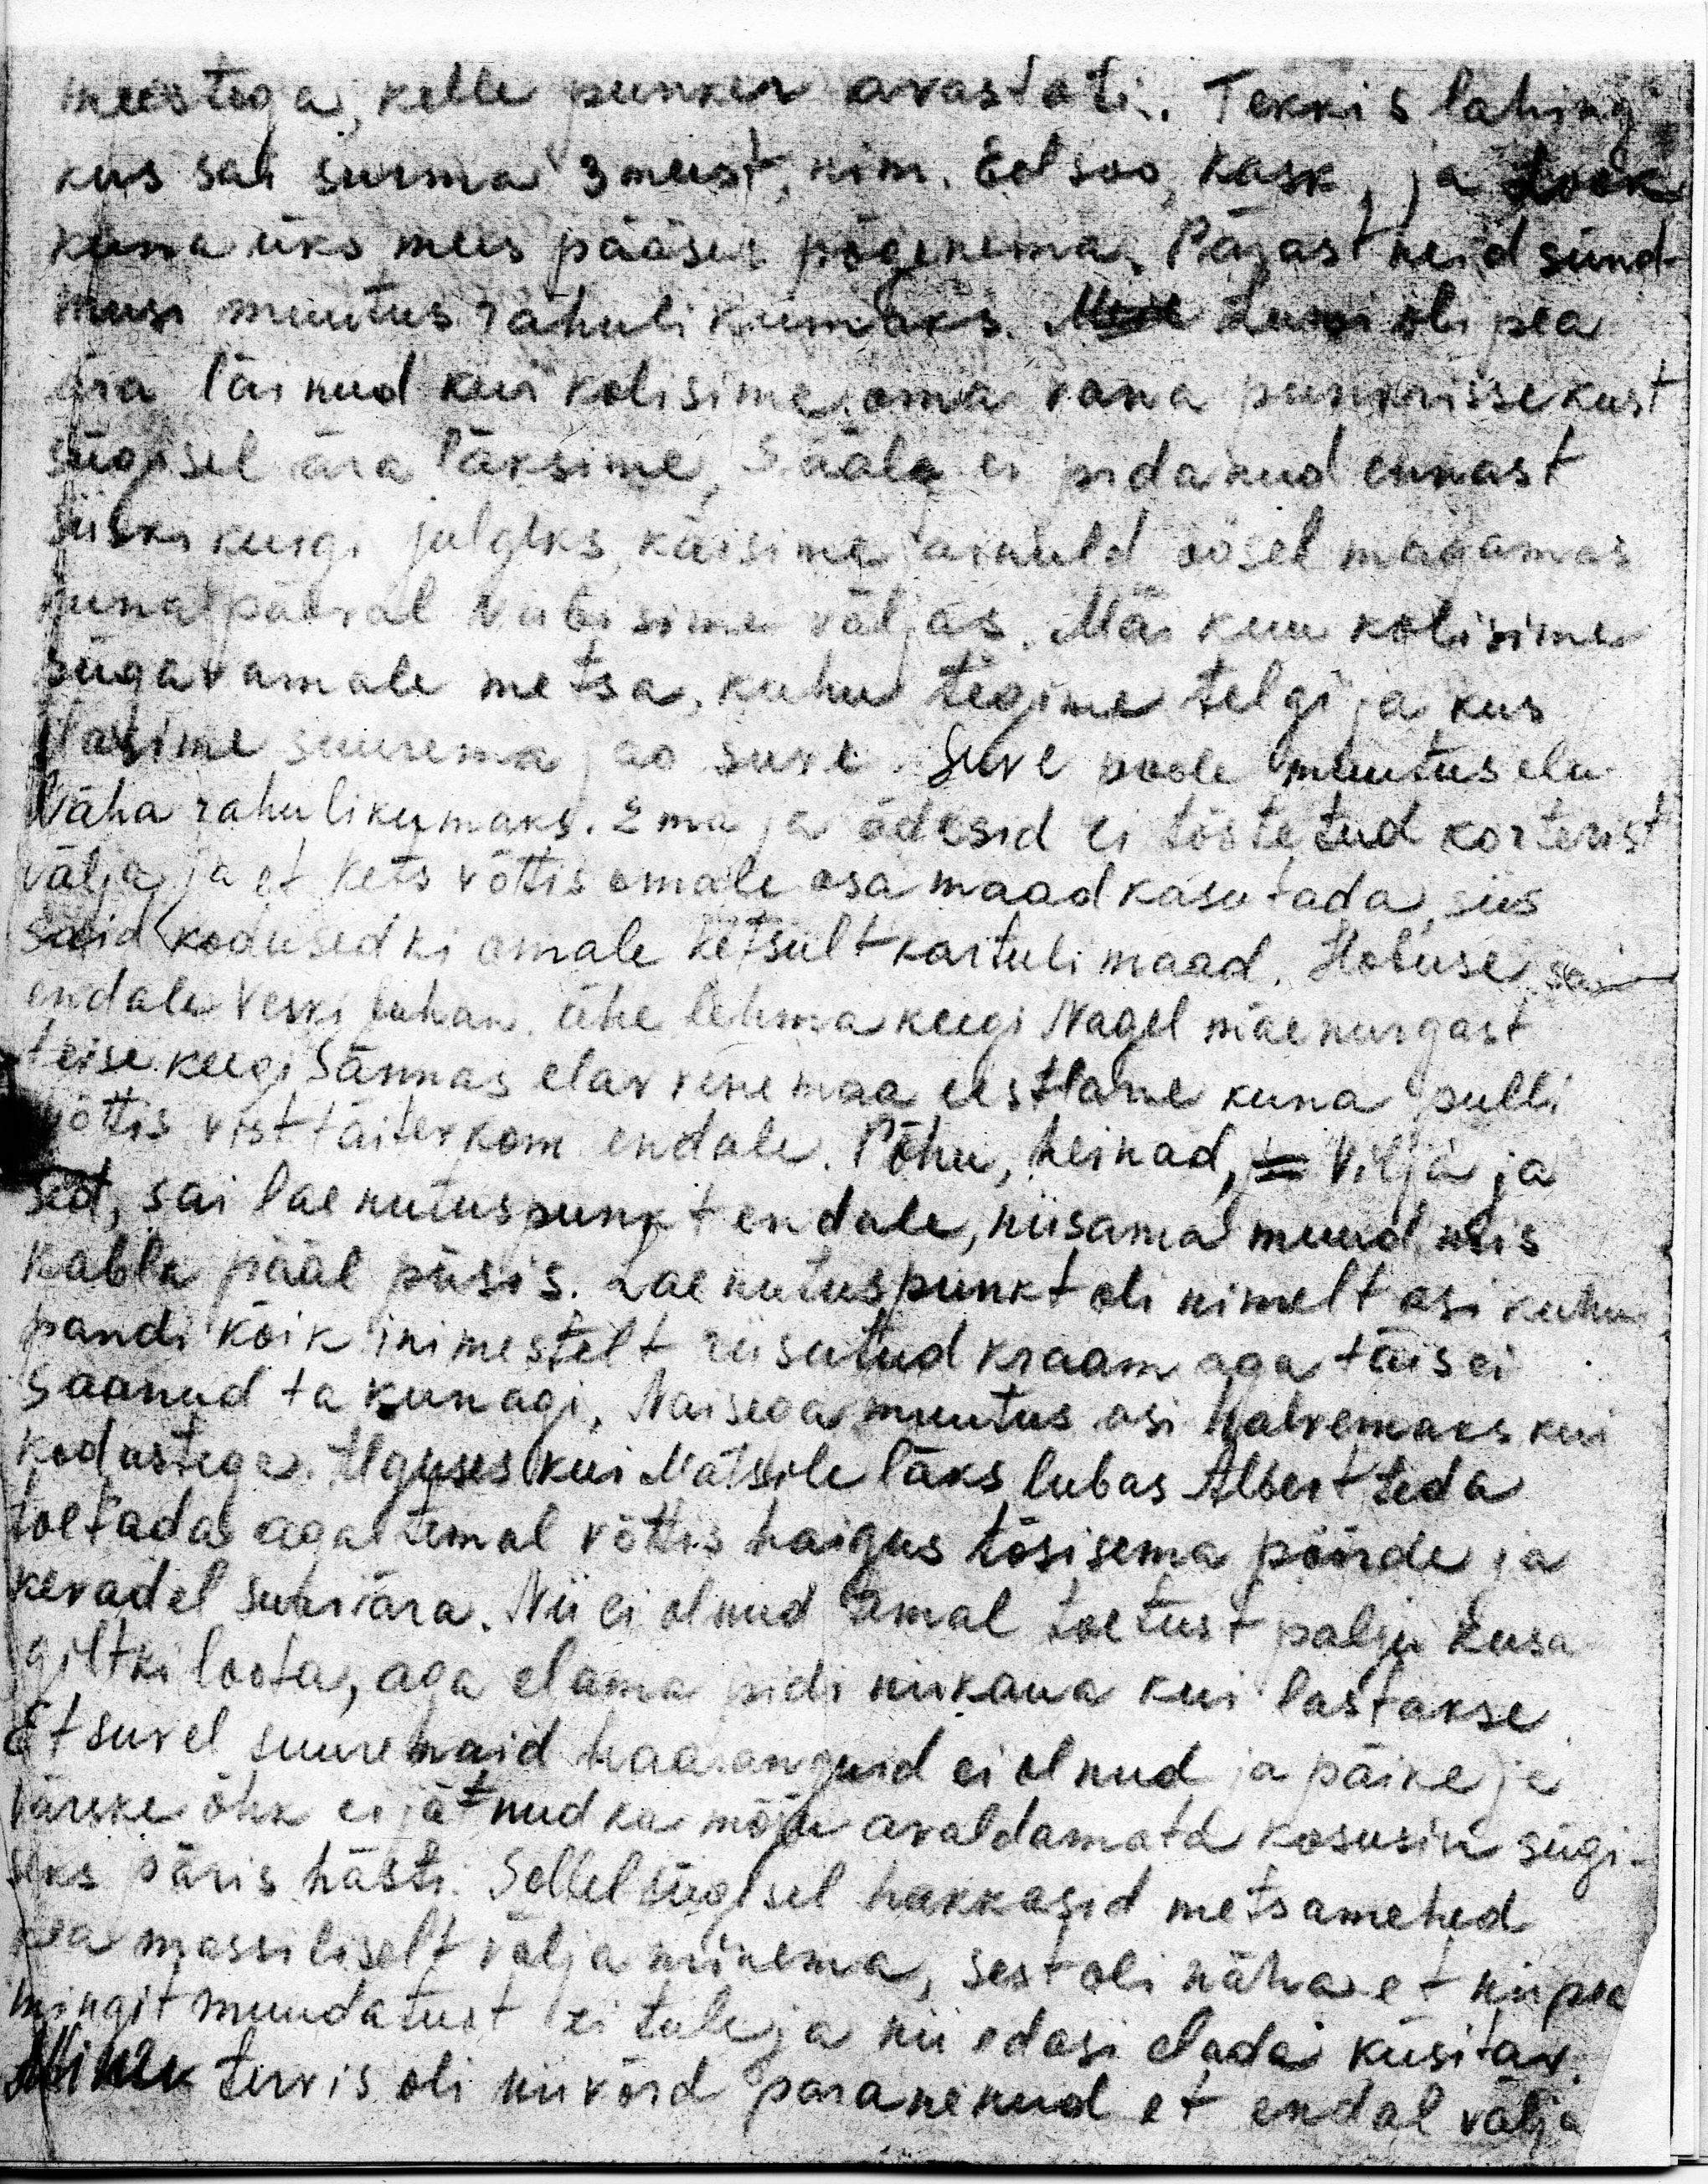 meestega, kelle punker avastati. Tekkis lahing
kus sai surma 3 meest, nim. Eetsoo, Kask, ja Look
kuna üks mees pääses põgenema. Pärast neid sünd-
musi muutus rahulikumaks. Lumi oli pea
ära läinud kui kolisime oma vana punkrisse kust
sügisel ära läksime, Sääla ei pidanud ennast
siiski kuigi julgeks, käisime ainuld öösel magamas
kuna päeval viibisime väljas. Mai kuu kolisime
sügavamale metsa, kuhu tegime telgi ja kus
elasime suurema jao suve. Suve poole muutus elu
väha rahulikumaks. Ema ja õdesid ei tõstetud korterist
välja, ja et Kets võttis omale osa maad kasutada, siis
said kodusedki omale Ketsult kartulimaad. Hobuse sai
endale Veski Juhan. ühe lehma keegi Nagel mäenurgast
teise keegi Sännas elav venemaa eestlane kuna pulli
võttis vist täitevkom. endale. Põhu, heinad, vilja ja
sed, sai laenutuspunkt endale, niisama muud mis
kabla pääl püsis. Laenutuspunkt oli nimelt asi kuhu
pandi kõik inimestelt riisutud kraam aga täis ei
saanud ta kunagi. Naisega muutus asi halvemaks kui
kodustega. Alguses kui Matsile läks lubas Albert teda
toetada aga temal võttis haigus tõsisema pöörde ja
kevadel suri ära. Nii ei olnud Emal toetust palju kusa-
giltki loota, aga elama pidi niikaua kui lastakse.
Et suvel suuremaid haaranguid ei olnud ja päike ja
värske õhk ei jätnud ka mõju avaldamata kosusin sügi-
seks päris hästi. Sellel sügisel hakkasid metsamehed
pea massiliselt välja minema, sest oli näha et niipea
mingit muudatust ei tule ja nii edasi elada küsitav.
Minu tervis oli niivõrd paranenud et endal välja